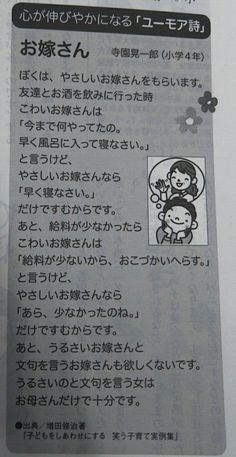 心が伸びやかになる「ユーモア詩」
お嫁さん
寺園晃一郎(小学4年)
ぼくは、やさしいお嫁さんをもらいます。
友達とお酒を飲みに行った時
こわいお嫁さんは
「今まで何やってたの。
早く風呂に入って寝なさい。」
と言うけど、
やさしいお嫁さんなら
「早く寝なさい。」
だけですむからです。
あと、給料が少なかったら
こわいお嫁さんは
「給料が少ないから、おこづかいへらす。」
と言うけど、
やさしいお嫁さんなら
「あら、少なかったのね。」
だけですむからです。
あと、うるさいお嫁さんと
文句を言うお嫁さんも欲しくないです。
うるさいのと文句を言う女は
お母さんだけで十分です。
●出典/増田修治著
『子どもをしあわせにする 笑う子育て実例集』